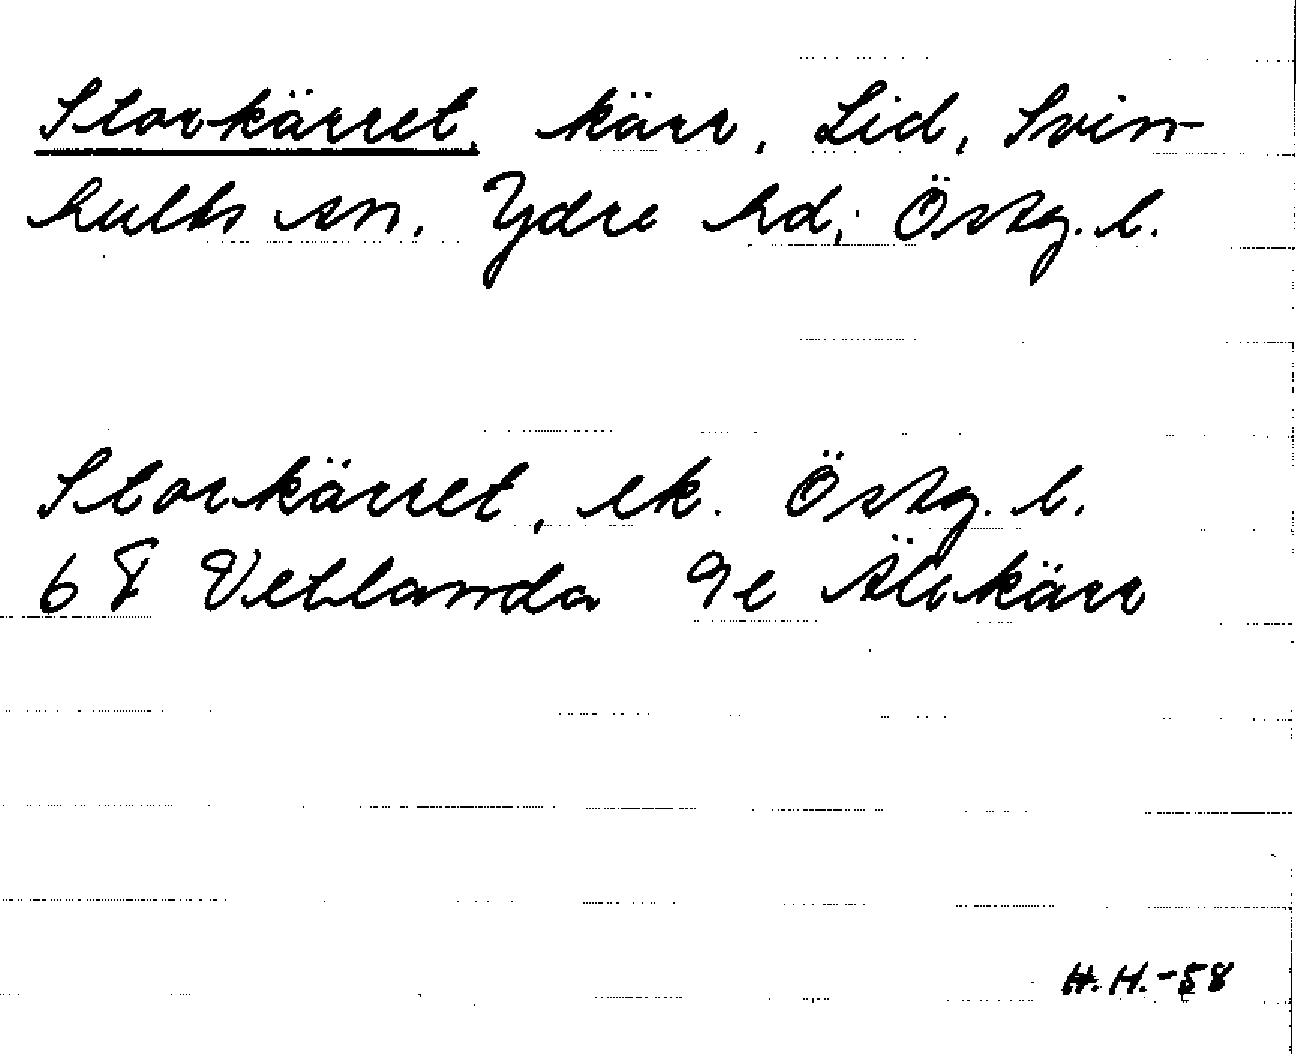 Storkärret, kärr, Lid, Svin-
hults sn. Ydre hd; Östg. l.
Storkärret, ek. Östg. l.
6 F Vetlanda 9e Älvkärr
H.H.-58